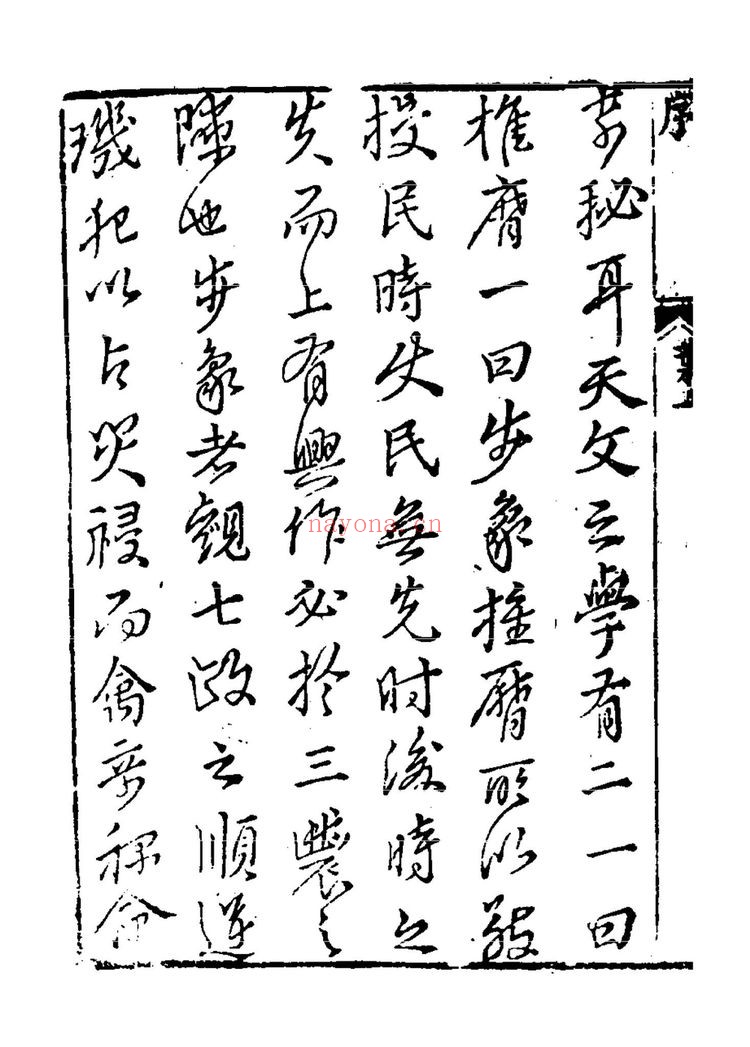 序
其秘耳天文之學有二一曰
推曆一曰步象推曆所以敬
授民時使民無先时後時之
失而上有興作必於三農之
隙也步象者觀七政之順逆
璣犯以占災祲而禽命
nayona.cn